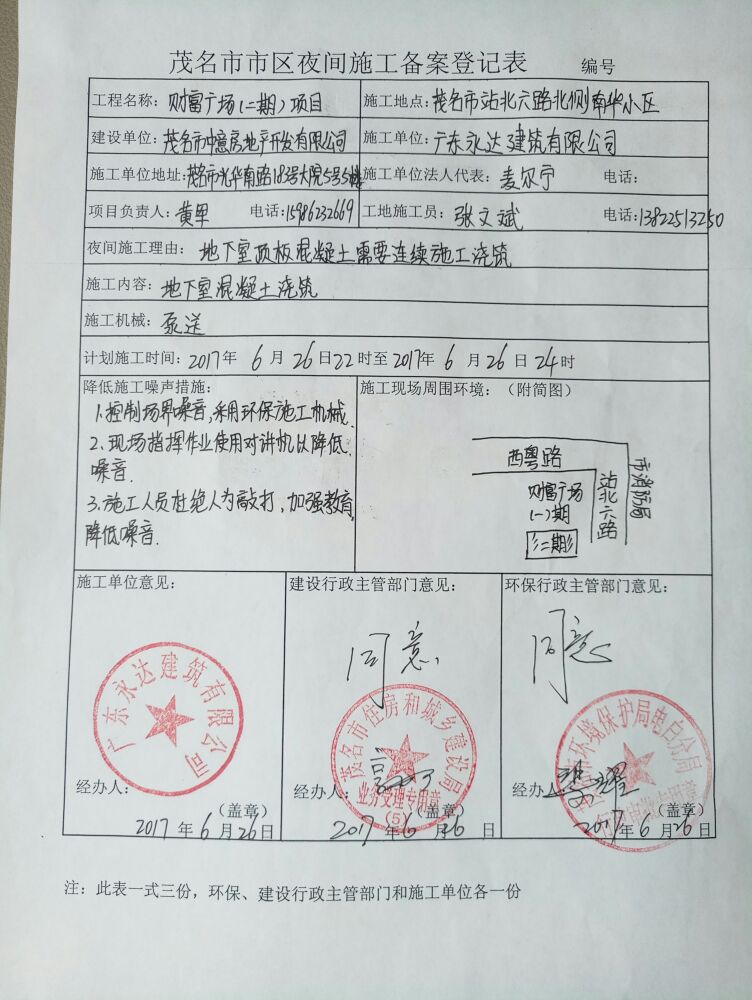 茂名市市区夜间施工备案登记表 编号
工程名称：财富广场(二期)项目 施工地点：茂名市站北六路北侧南华小区
建设单位：茂名市中意房地产开发有限公司 施工单位：广东永达建筑有限公司
施工单位地址：茂名市光华南路183号大院5号5楼 施工单位法人代表：麦尔宁 电话：
项目负责人：黄里 电话：15986232669 工地施工员：张文斌 电话：13822513250
夜间施工理由：地下室顶板混凝土需要连续施工浇筑
施工内容：地下室混凝土浇筑
施工机械：泵送
计划施工时间：2017年 6 月 26日22时至2017年 6 月 26日24时
降低施工噪声措施： 施工现场周围环境：（附简图）
1.控制场界噪音，采用环保施工机械.
2.现场指挥作业使用对讲机以降低
噪音.
3.施工人员杜绝人为敲打，加强教育
降低噪音.
西粤路
财富广场
(一)期
二期
站北六路
市消防局
施工单位意见： 建设行政主管部门意见： 环保行政主管部门意见：
同意. 同意
广东永达建筑有限公司
茂名市住房和城乡建设局
业务受理专用章
(5)
市环境保护局电白分局
经办人： 经办人： 经办人：
（盖章） （盖章） （盖章）
2017年6月26日 2017年6月26日 2017年6月26日
注：此表一式三份，环保、建设行政主管部门和施工单位各一份